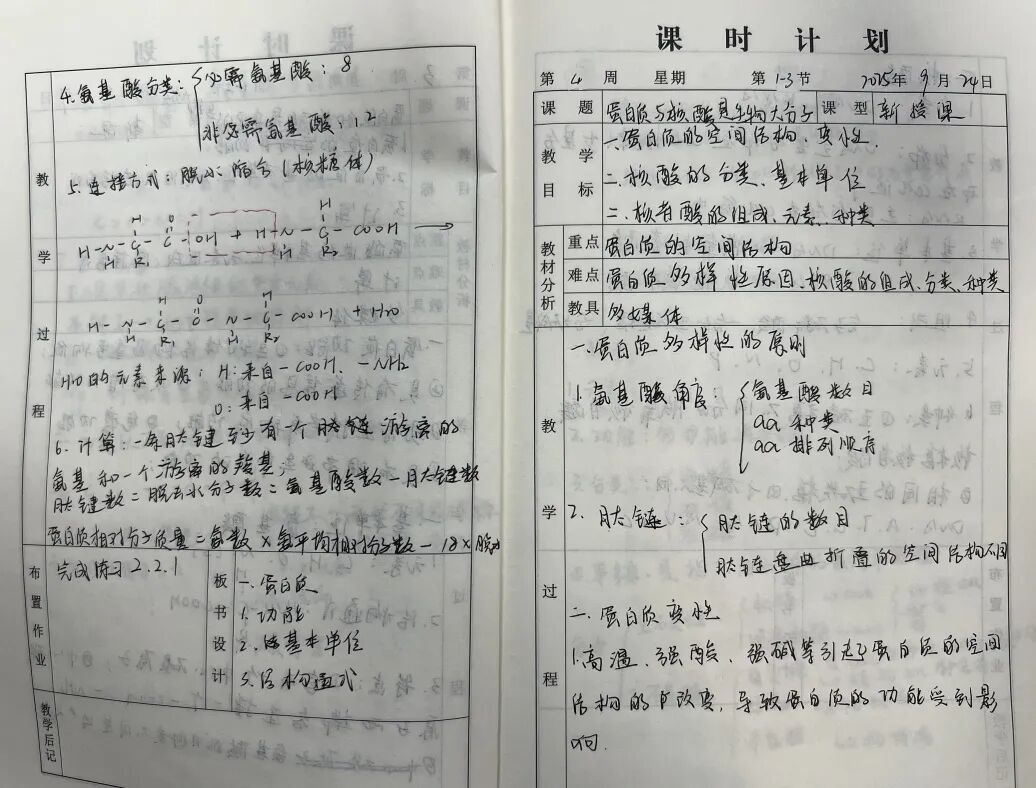 教学过程
4.氨基酸分类:必需氨基酸:8
非必需氨基酸:12
5.连接方式:脱水缩合(核糖体)
H H
O
H-N-C-C-OH + H-N-C-COOH →
H R₁ H R₂
H O H
H-N-C-C-N-C-COOH + H₂O
H R₁ H R₂
H₂O的元素来源:H:来自-COOH、-NH₂
O:来自-COOH
6.计算:一条肽链至少有一个肽链游离的
氨基和一个游离的羧基;
肽键数=脱去水分子数=氨基酸数-肽链数
蛋白质相对分子质量=氨数×氨平均相对分子数-18×脱水
布置作业
完成练习2.2.1
板书设计
一.蛋白质
1.功能
2.基本单位
3.结构通式
教学后记
课时计划
第4周 星期 第1-3节 2025年9月24日
课题 蛋白质与核酸是生物大分子 课型 新授课
教学目标
一.蛋白质的空间结构、变性.
二.核酸的分类、基本单位
二.核苷酸的组成、元素、种类
教材分析
重点 蛋白质的空间结构
难点 蛋白质多样性原因、核酸的组成、分类、种类
教具 多媒体
教学过程
一.蛋白质多样性的原则
1.氨基酸角度:氨基酸数目
aa种类
aa排列顺序
2.肽链:肽链的数目
肽链盘曲折叠的空间结构不同
二.蛋白质变性
1.高温、强酸、强碱等引起了蛋白质的空间
结构的改变,导致蛋白质的功能受到影
响.